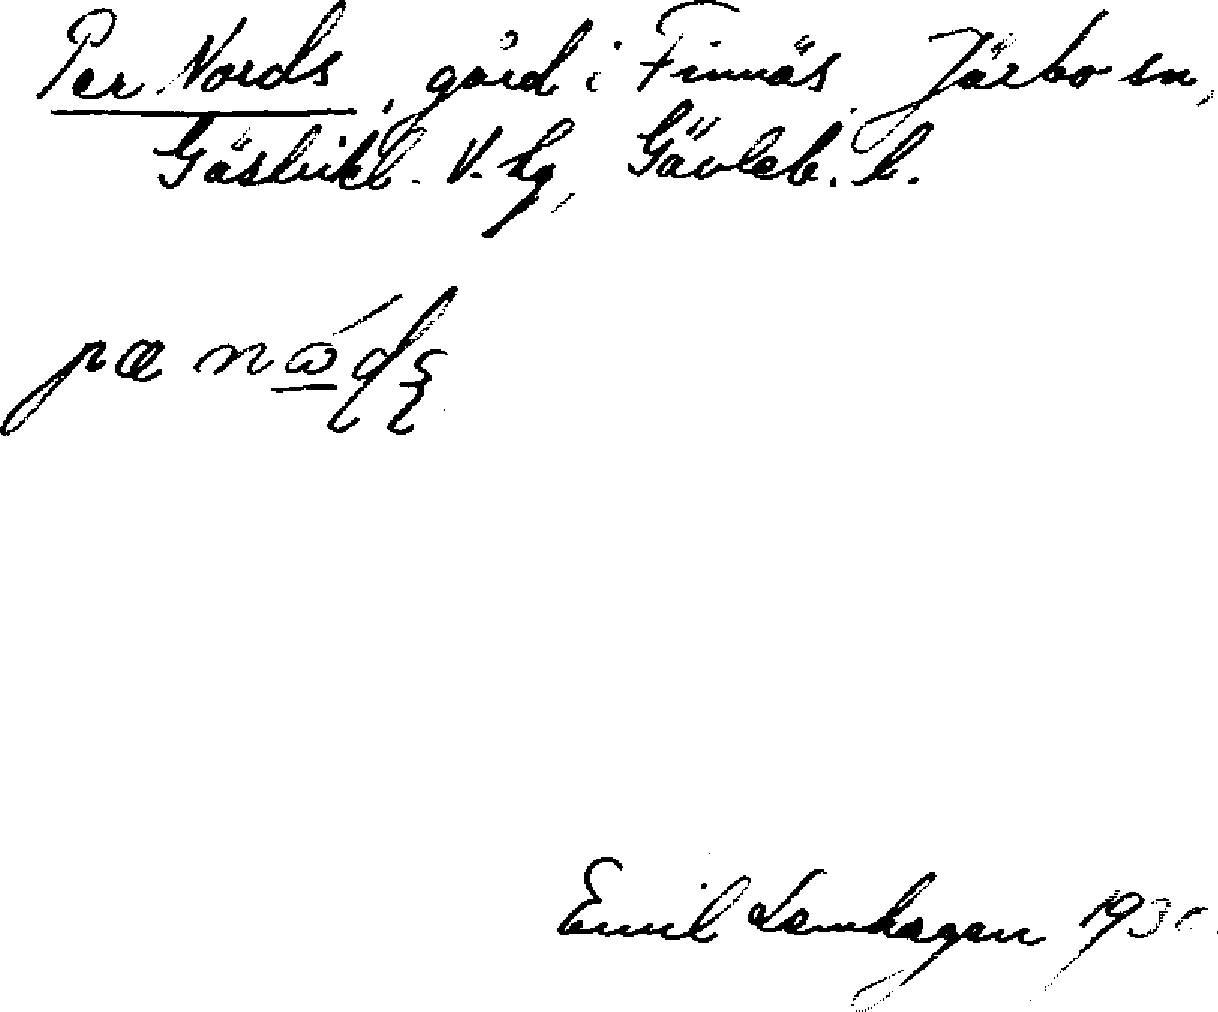 Per Nords, gård i Finnäs Järbo sn,
Gästrikl. V. hg, Gävleb. l.
pæ
Emil Lamhagen 1930